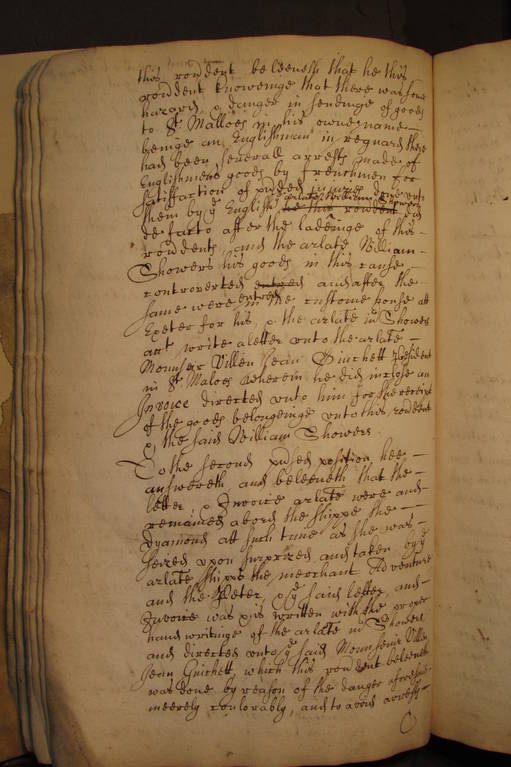 this rondent beleeveth that he this
rondent knoweinge that there was some
hazard & danger in sendinge of goods
to St Malloes in his owne name
beinge an Englishman in reguard there
had been severall arrests made of
Englishmens goods by frenchmen for
satisfaction of injuries done unto
them by ye English arlate William Showers
he this rondent did
de facto after the ladeinge of this
rondents and the arlate William
Showers his goods in this cause
controverted entred and after the
same were entred in the custome house att
Exeter for his & the arlate Wm Showers
act write a letter unto the arlate
Mounsier Villen Jean Guichett resident
in St Maloes wherein he did inclose an
Invoice directed unto him for the receipt
of the goods belongeinge unto this rondent
& the said William Showers
To the second pdsed position hee
answereth and beleeveth that the
letter & Invoice arlate were and
remained abord the shippe the
Dyamond att such tyme as she was
seized upon surprized and taken by ye
arlate shipps the merchant Adventure
and the Peter, & ye said letter and
Invoice was & is written with the proper
hand writinge of the arlate Wm Showers
and directed unto ye said Mounsenir Villen
Jean Guichett which this rondent beleeveth
was done by reason of the danger aforesaid
meerely coulorably, and to avoid arrests